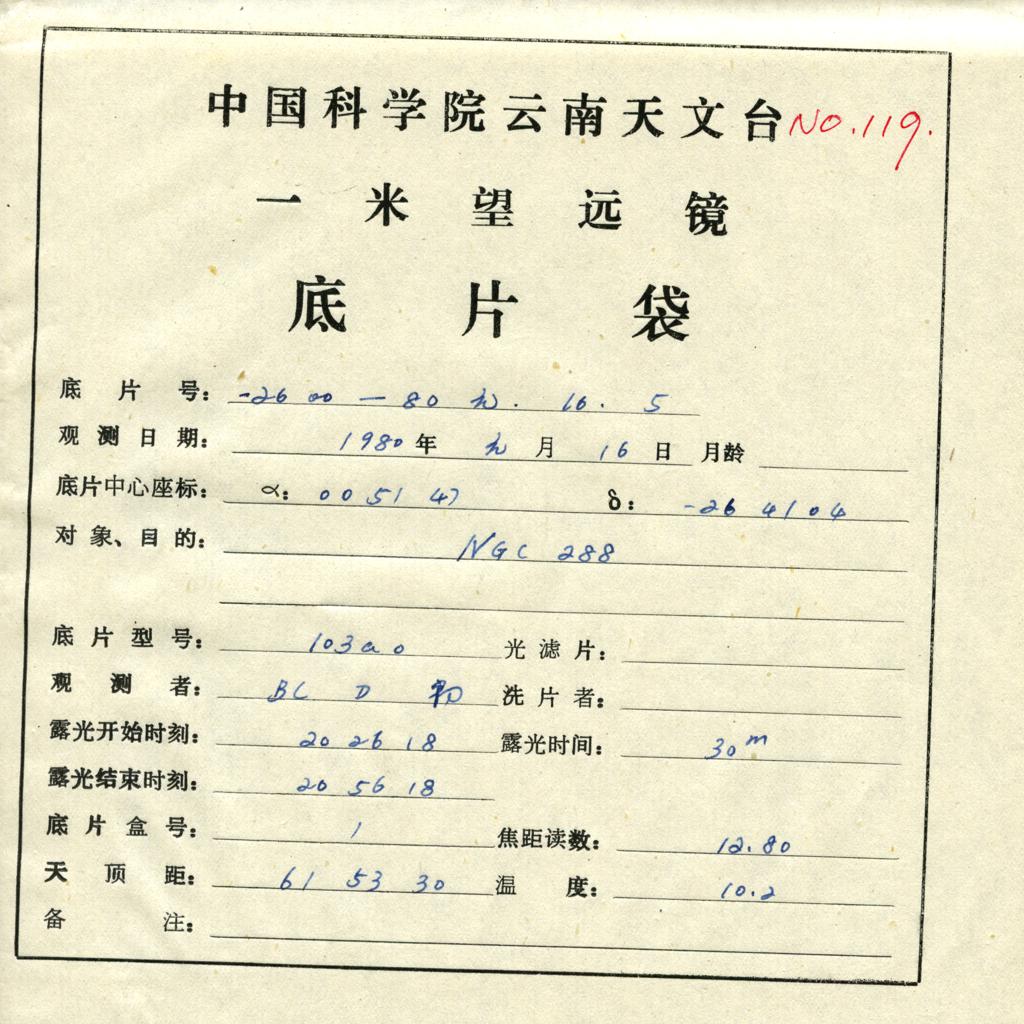 中国科学院云南天文台 NO.119.
一米望远镜
底片袋
底片号: -26 00 — 80 元. 16. 5
观测日期: 1980年 元月 16日 月龄
底片中心座标: α: 00 51 47 δ: -26 41 04
对象、目的: NGC 288
底片型号: 103a0 光滤片:
观测者: BC D 洗片者:
露光开始时刻: 20 26 18 露光时间: 30m
露光结束时刻: 20 56 18
底片盒号: 1 焦距读数: 12.80
天顶距: 61 53 30 温度: 10.2
备注: